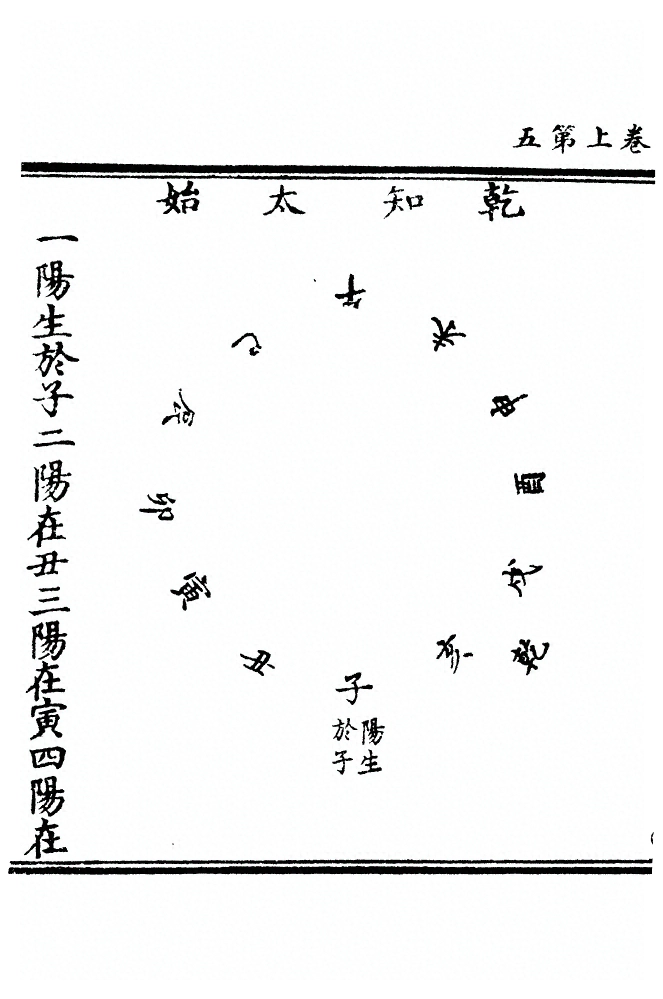 卷上第五
乾知太始
午
未
申
酉
戌
乾
亥
子
陽生
於子
丑
寅
卯
辰
巳
一陽生於子二陽在丑三陽在寅四陽在